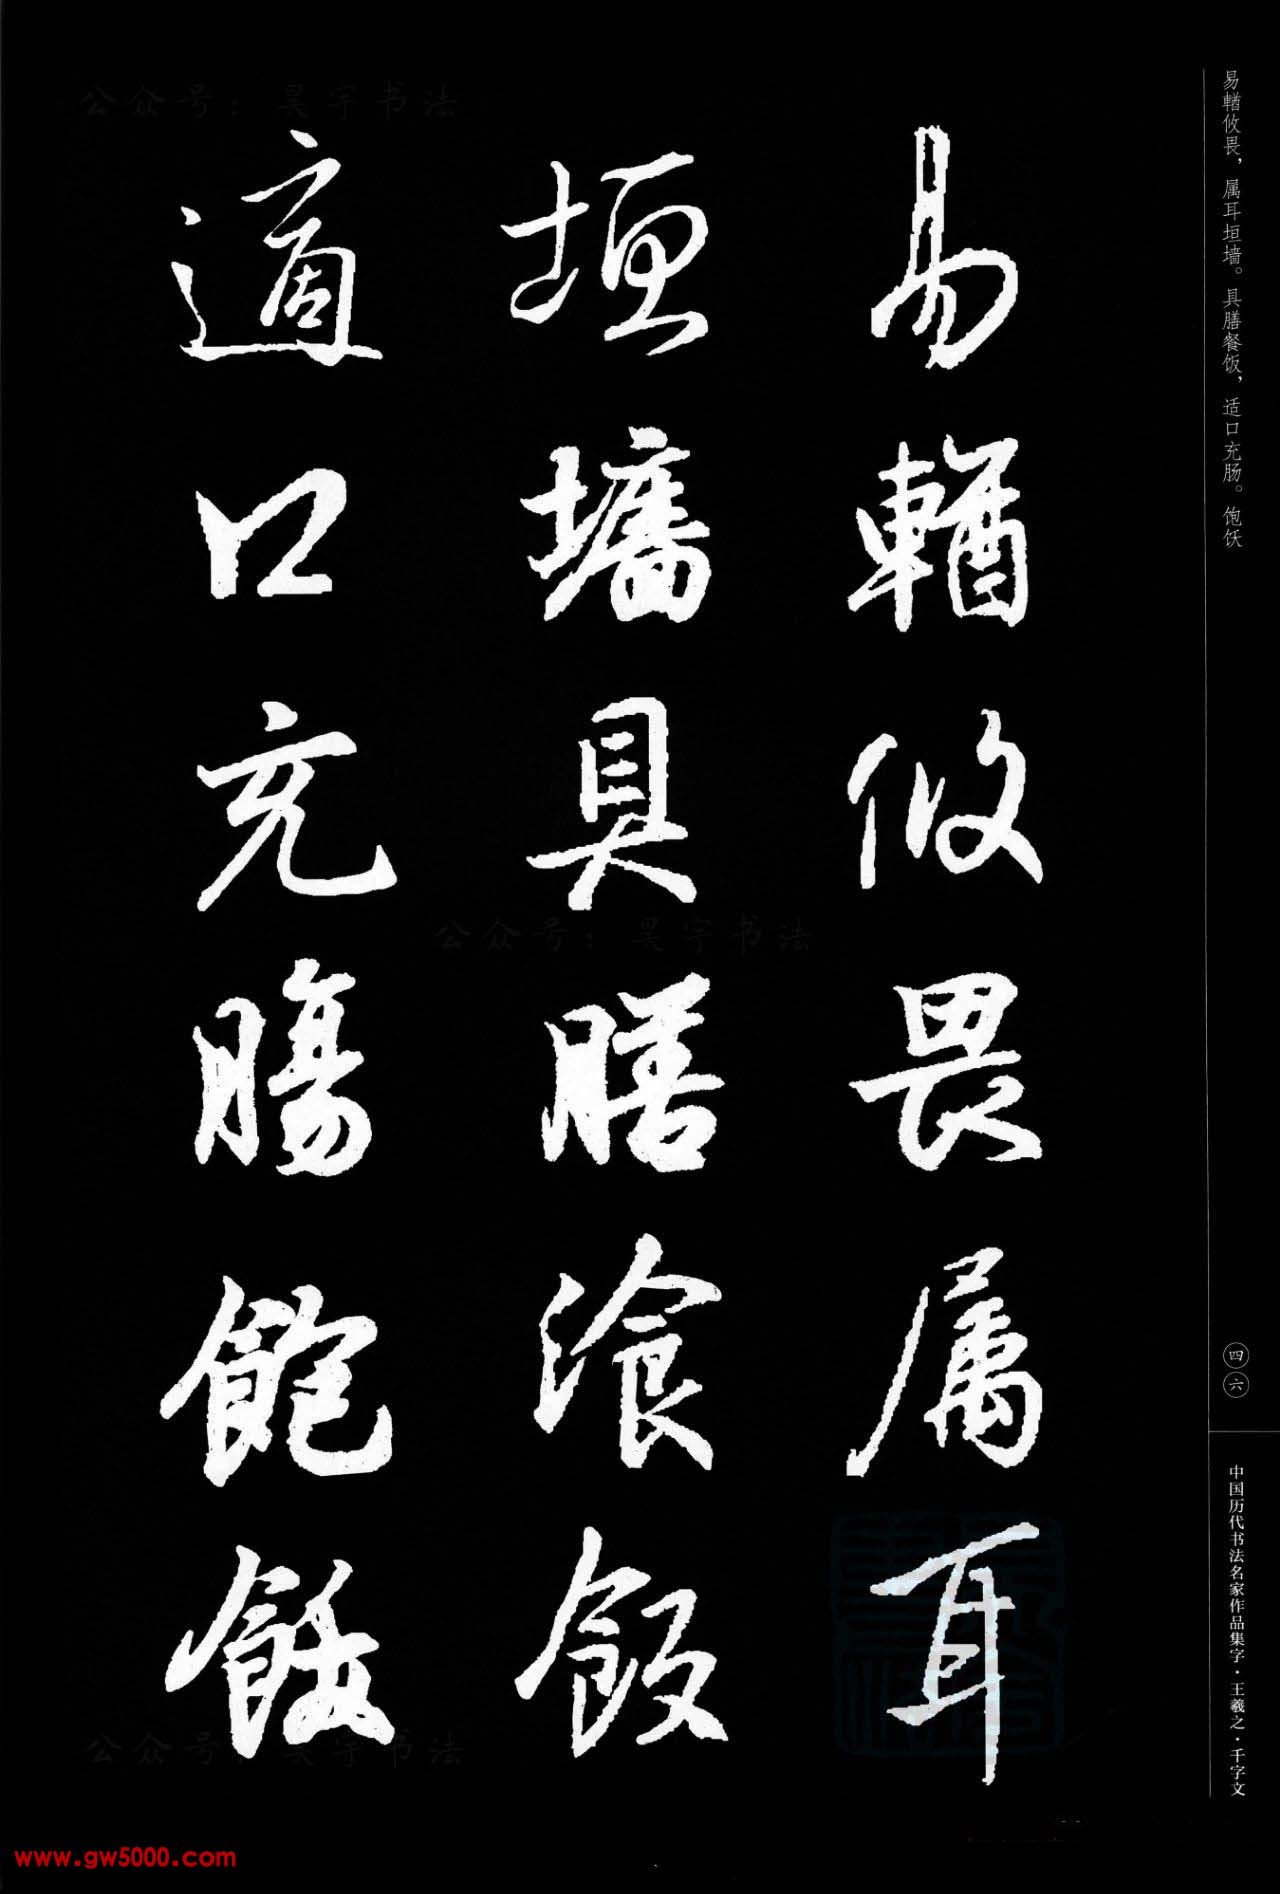 易輶攸畏，属耳垣墙。具膳餐饭，适口充肠。饱饫
易輶攸畏属耳
垣墻具膳湌飯
適口充腸飽飫
四六
中国历代书法名家作品集字·王羲之·千字文
公众号：昊宇书法
公众号：昊宇书法
公众号：昊宇书法
www.gw5000.com